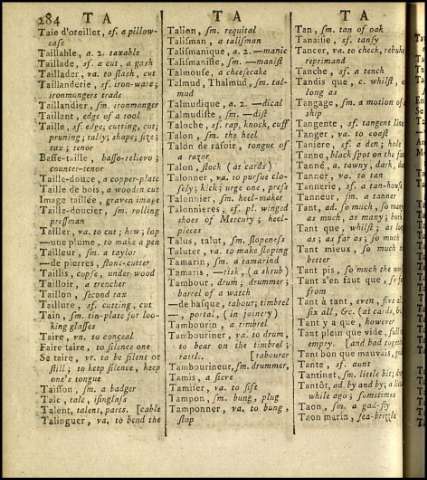 284 T A
T A
T A
Taie d'oreiller, sf. a pillow-
case
Taillable, a. 2. taxable
Taillade, sf. a cut, a gash
Taillader, va. to slash, cut
Taillanderie, sf. iron-ware;
ironmongers trade
Taillandier, sm. ironmonger
Taillant, edge of a tool
Taille, sf. edge, cutting, cut;
pruning; tally; shape; size;
tax; tenor
Basse-taille, basso-relievo;
counter-tenor
Taille-douce, a copper-plate
Taille de bois, a wooden cut
Image taillée, graven image
Taille-doucier, sm. rolling
pressman
Tailler, va. to cut; hew; lop
—une plume, to make a pen
Tailleur, sm. a taylor
—de pierres, stone-cutter
Taillis, copse, under-wood
Tailloir, a trencher
Taillon, second tax
Taillure, sf. cutting, cut
Tain, sm. tin-plate for loo-
king glasses
Taire, va. to conceal
Faire taire, to silence one
Se taire, vr. to be silent or
still; to keep silence, keep
one's tongue
Taisson, sm. a badger
Talc, talc, isinglass
Talent, talent, parts. [cable
Talinguer, va. to bend the
Talion, sm. requital
Talisman, a talisman
Talismanique, a. 2. —manic
Talismaniste, sm. —manist
Talmouse, a cheesecake
Talmud, Thalmud, sm. tal-
mud
Talmudique, a. 2. —dical
Talmudiste, sm. —dist
Taloche, sf. rap, knock, cuff
Talon, sm. the heel
Talon de rasoir, tongue of
a razor
Talon, stock (at cards)
Talonner, va. to pursue clo-
sely; kick; urge one, press
Talonnier, sm. heel-maker
Talonnieres, sf. pl. winged
shoes of Mercury; heel-
pieces
Talus, talut, sm. slopeness
Taluter, va. to make sloping
Tamarin, sm. a tamarind
Tamaris, —risk, (a shrub)
Tambour, drum; drummer;
barrel of a watch
—de basque, tabour; timbrel
—, portal, (in joinery)
Tambourin, a timbrel
Tambouriner, va. to drum,
to beat on the timbrel;
rattle. [tabourer
Tambourineur, sm. drummer,
Tamis, a sieve
Tamiser, va. to sift
Tampon, sm. bung, plug
Tamponner, va. to bung,
stop
Tan, sm. tan of oak
Tanaisie, sf. tansy
Tancer, va. to check, rebuke
reprimand
Tanche, sf. a tench
Tandis que, c. whilst, as
long as
Tangage, sm. a motion of
ship
Tangente, sf. tangent line
Tanger, va. to coast
Taniere, sf. a den; hole
Tanne, black spot on the fa
Tanné, a. tawny, dark,
Tanner, va. to tan
Tannerie, sf. a tan-hous
Tanneur, sm. a tanner
Tant, ad. so much, so man
as much, as many; both
Tant que, whilst; as lon
as; as far as; so much
Tant mieux, so much th
better
Tant pis, so much the wo
Tant s'en faut que, so fa
from
Tant à tant, even, five a
six all, &c. (at cards, b
Tant y a que, however
Tant plein que vide, full
empty. [and bad togeth
Tant bon que mauvais, go
Tante, sf. aunt
Tantinet, sm. little bit;
Tantôt, ad. by and by; a lit
while ago; sometimes
Taon, sm. a gad-fly
Taon marin, sea-brizzle